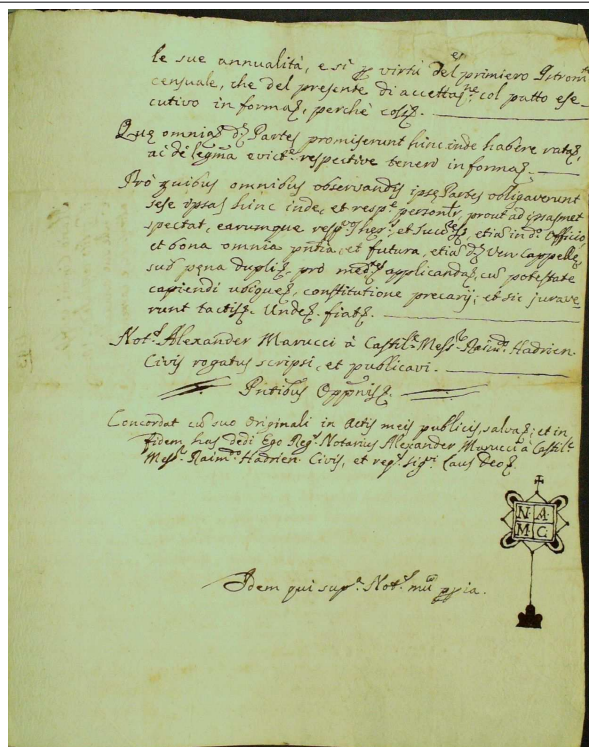 le sue annualità, e sì p virtù del primiero Istromto
censuale, che del presente di accettazne col patto ese-
cutivo in forma, perchè così
Quæ omnia d. Partes promiserunt hinc inde habere rata,
ac de legma evict.e respective teneri in forma
Pro quibus omnibus observandis ipsę Partes obligaverunt
sese ipsas hinc inde, et resp.e personlr, prout ad ipsasmet
spectat, earumque resp.e hęr.s, et Success, etia in d.o Officio,
et bona omnia pntia, et futura, etia d. Ven Cappellę
sub pęna dupli, pro med.te applicanda, cu potestate
capiendi ubique, constitutione precarij; et sic jurave-
runt tactis. Unde. fiat
Not.s Alexander Marucci à Castil.e Mess.r Raim.o Hadrien.
Civis rogatus scripsi, et publicavi.
Pntibus Oppnis
Concordat cu suo originali in Actis meis publicis, salva; et in
fidem has dedi Ego Reg.s Notarius Alexander Marucci à Castil.e
Mess.r Raim.o Hadrien. Civis, et req.s sig.vi Laus Deo
N. A.
M. C.
Idem qui sup.a Not.s mu ppia.